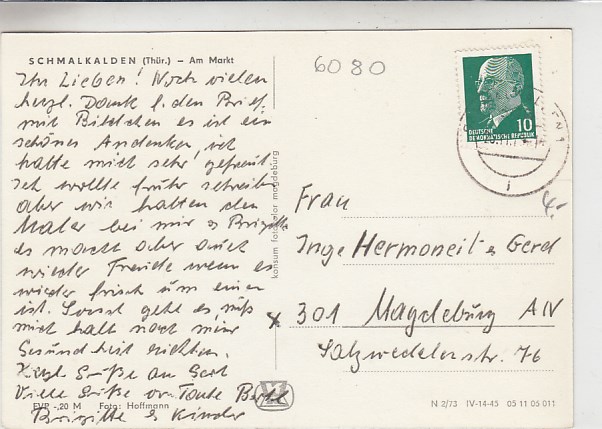 SCHMALKALDEN (Thür.) – Am Markt
6080
Ihr Lieben! Noch vielen
herzl. Dank f. den Brief
mit Bildchen es ist ein
schönes Andenken, ich
hatte mich sehr gefreut
Ich wollte früher schreiben
aber wir hatten den
Maler bei mir u Brigitte
es macht aber auch
wieder Freude wenn es
wieder frisch um einen
ist. Sonst geht es, muß
mich halt nach mein
Gesundheit richten.
Herzl. Grüße an Gerd
Viele Grüße von Tante
Brigitte u Kinder
EVP -,20 M Foto: Hoffmann
konsum fotocolor magdeburg
10
DEUTSCHE
DEMOKRATISCHE REPUBLIK
Frau
Inge Hermoneit u Gerd
301 Magdeburg A IV
Salzwedelerstr. 76
N 2/73 IV-14-45 05 11 05 011